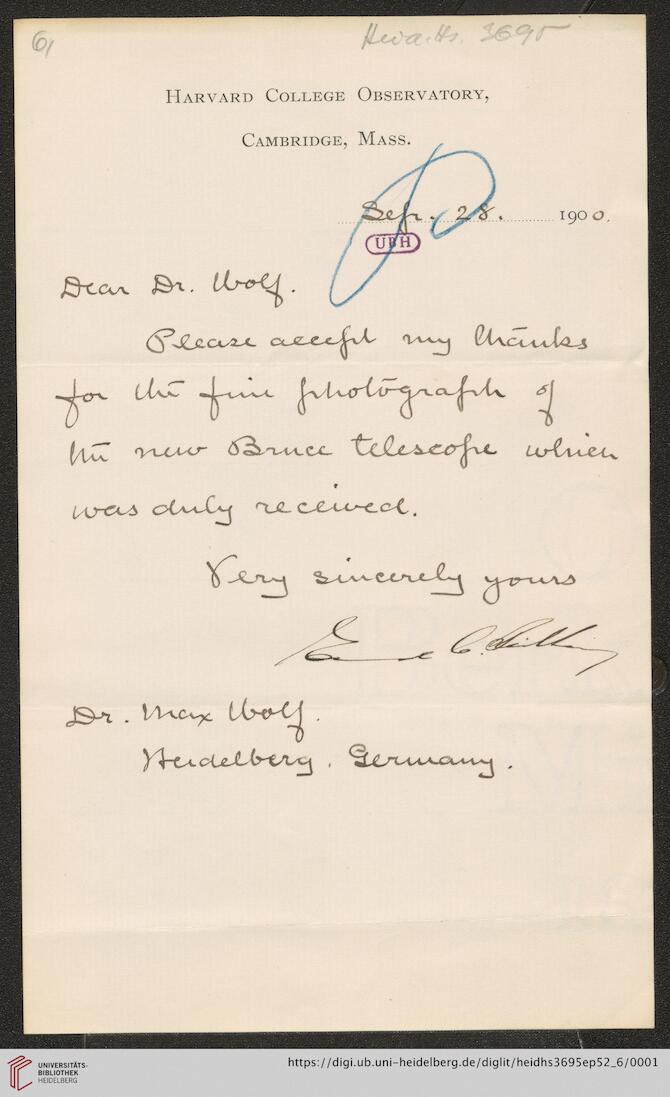 6,
Heid. Hs. 3695
HARVARD COLLEGE OBSERVATORY,
CAMBRIDGE, MASS.
Sep. 28. 1900.
UBH
Dear Dr. Wolf.
Please accept my thanks
for the fine photograph of
the new Bruce telescope which
was duly received.
Very sincerely yours
Edward C. Pickering
Dr. Max Wolf.
Heidelberg. Germany.
UNIVERSITÄTS-
BIBLIOTHEK
HEIDELBERG
https://digi.ub.uni-heidelberg.de/diglit/heidhs3695ep52_6/0001